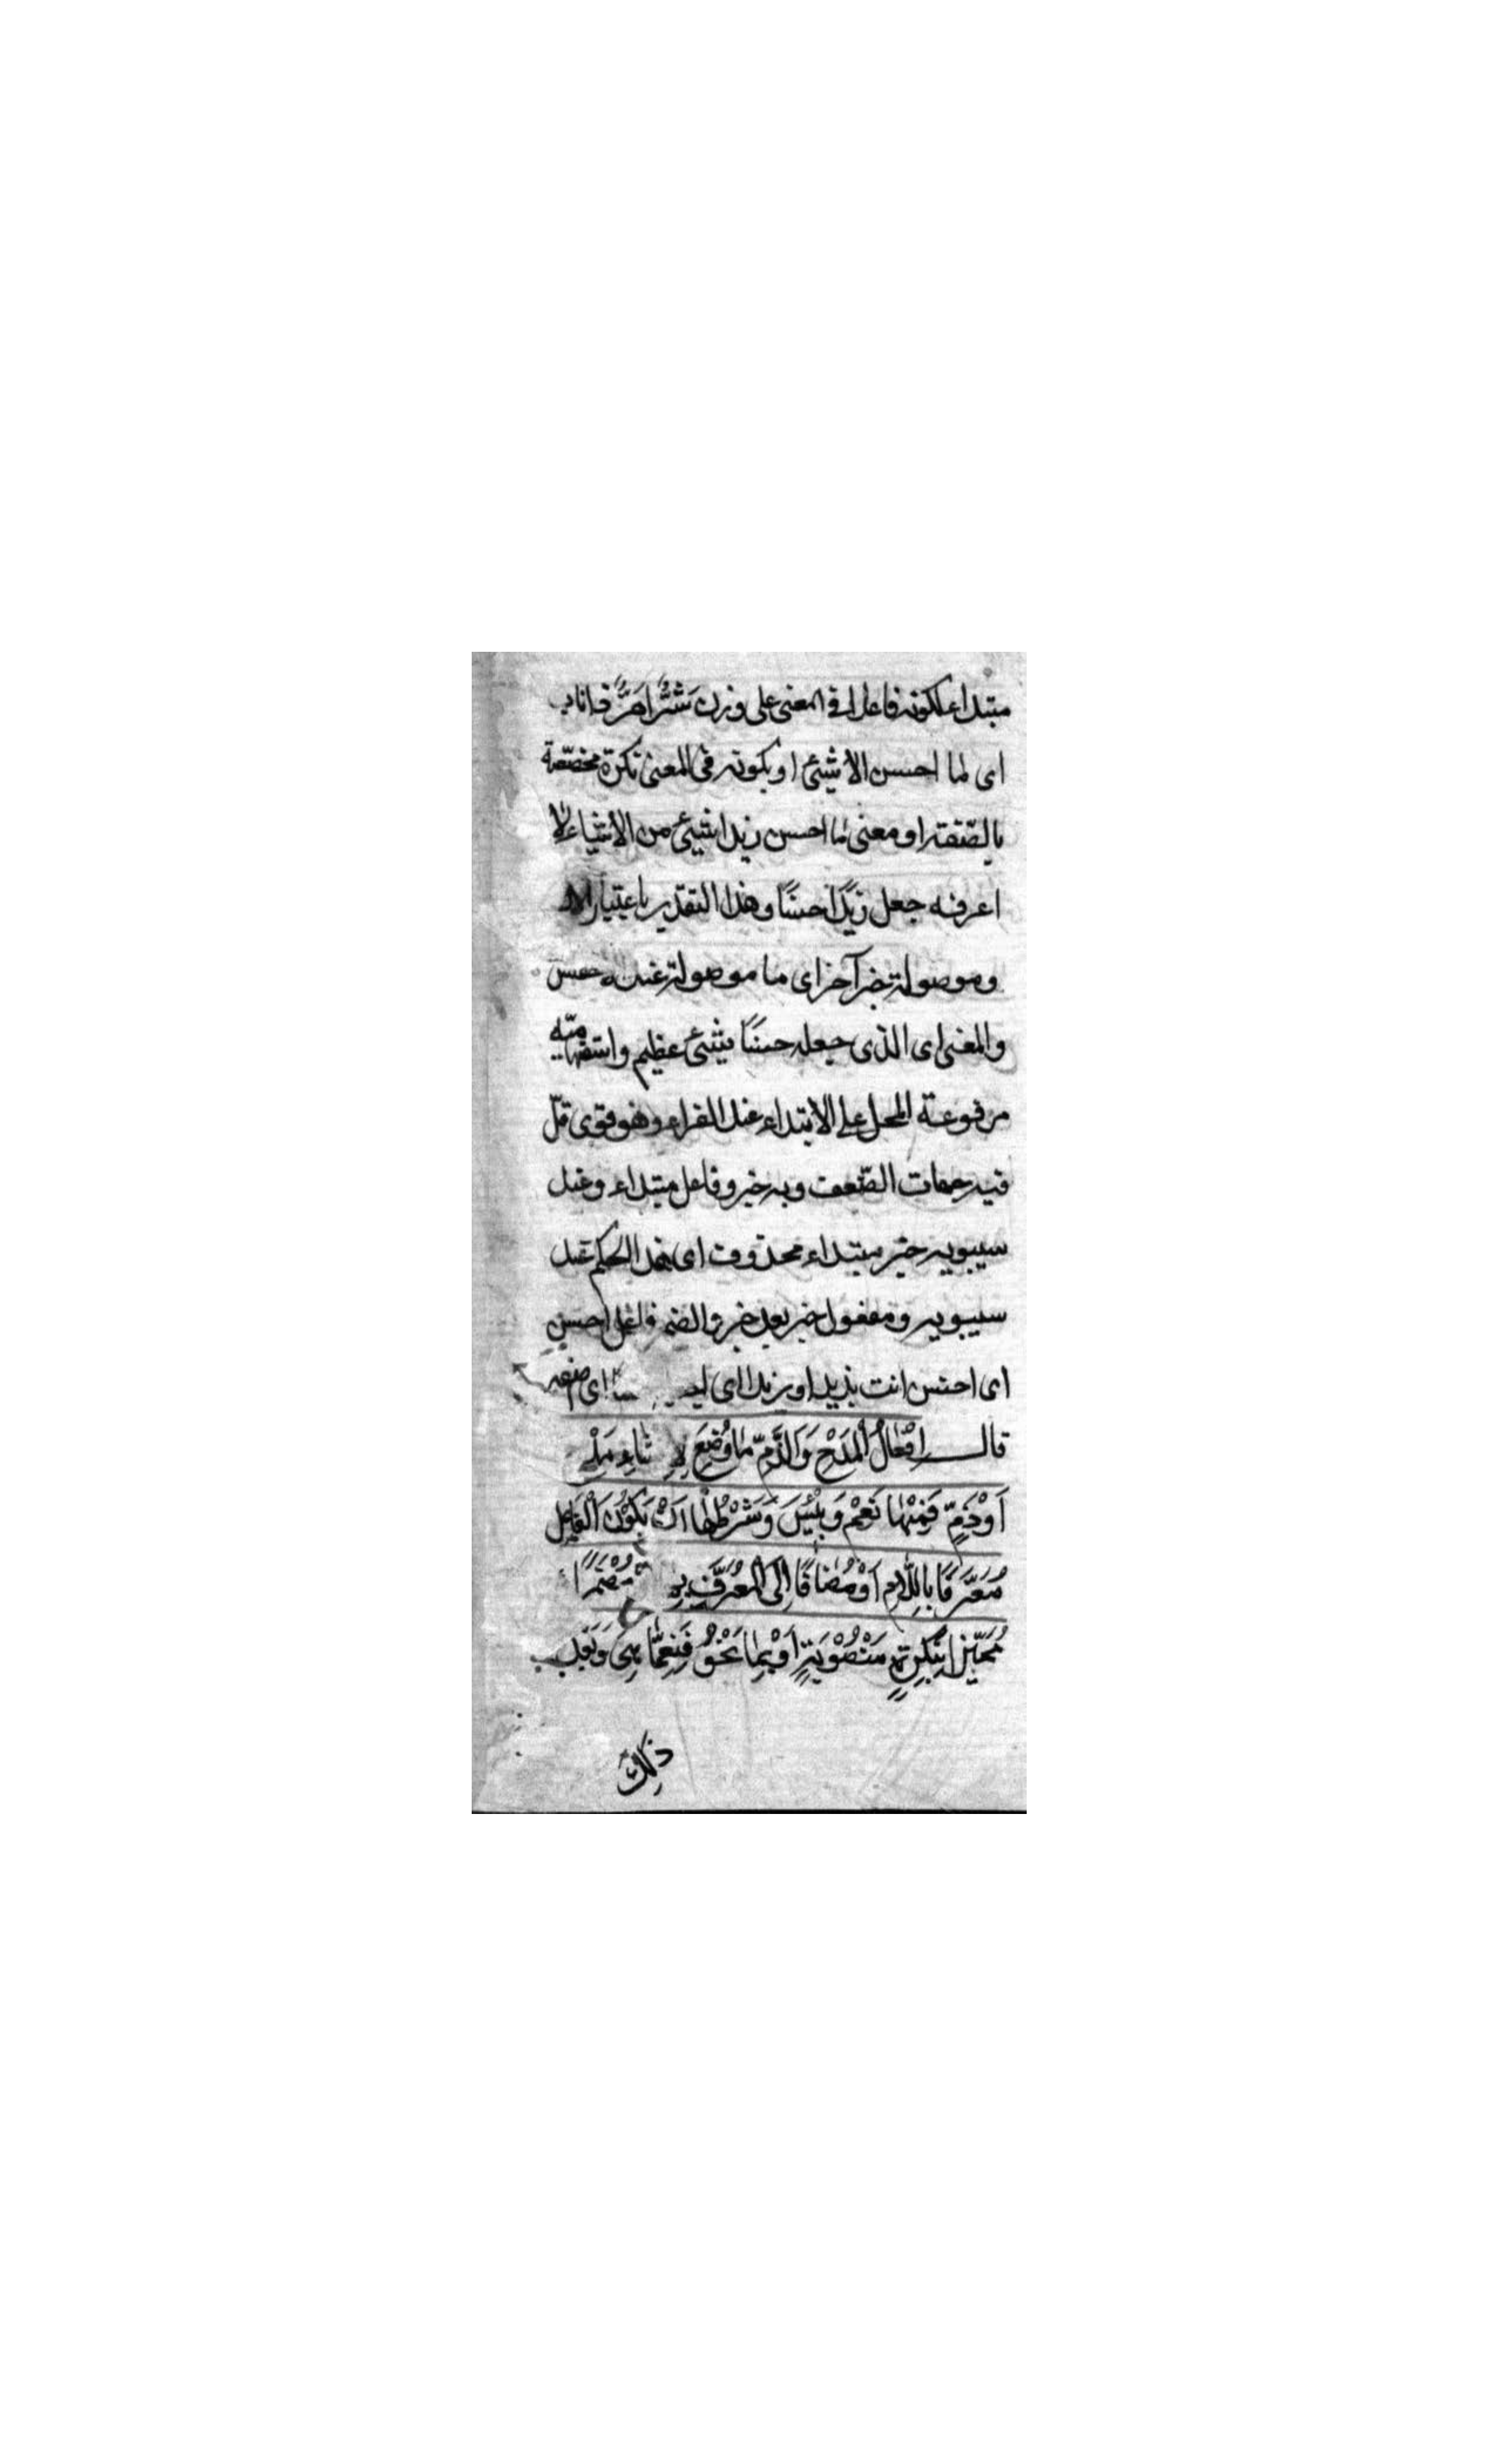 مبتداء لكونه فاعلا فى المعنى على وزن شَرٌّ اَهَرَّ ذاناب
اى لما احسن الا شيئ او بكونه فى المعنى نكرة مخصّصة
بالصّفة او معنى ما احسن زيدا شيئ من الاشياء لا
اعرفه جعل زيدًا حسنًا وهذا التقدير باعتبار
وموصولة خبر آخر اى ما موصولة عند
والمعنى اى الذى جعله حسنًا شيئ عظيم واستفهاميّه
مرفوعة المحل على الابتداء عند الفراء وهو قوى
فيه جهات الضّعف وبه خبر وفاعل مبتداء وعند
سيبويه خبر مبتداء محذوف اى هذا الحكم عند
سيبويه ومفعول خبر بعد خبر والضم فاعل احسن
اى احسن انت بزيد او زيدا اى اى صفه
قال اَفْعَالُ الْمَدْحِ وَالذَّمِّ مَا وُضِعَ لِا نْشَاءِ مَدْحٍ
اَوْ ذَمٍّ فَمِنْهَا نِعْمَ وَبِئْسَ وَشَرْطُهَا اَنْ يَكُوْنَ الْفَاعِلُ
مُعَرَّفًا بِاللَّامِ اَوْ مُضَافًا اِلَى الْمُعَرَّفِ بِهِ مُضْمَرًا
مُمَيَّزًا بِنَكِرَةٍ مَنْصُوْبَةٍ اَوْ بِمَا نَحْوُ فَنِعِمَّا هِىَ وَبَعْدَ
ذٰلِكَ